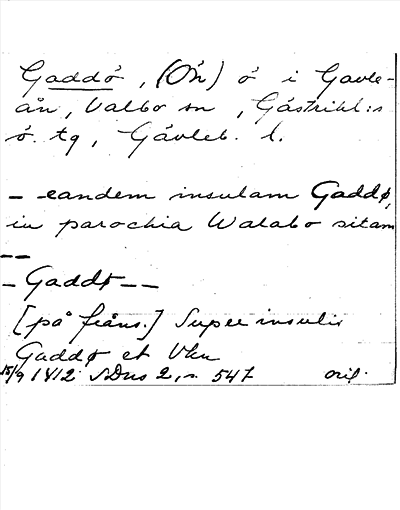 Gaddö, (Ön) ö i Gavle-
ån, Valbo sn, Gästrikl:s
ö. tg, Gävleb. l.
— eandem insulam Gaddø,
in parochia Walabo sitam
——
— Gaddø ——
[på fråns.] Super insulis
Gaddø et Vkn
15/9 1412 SDns 2, s. 547 orig.